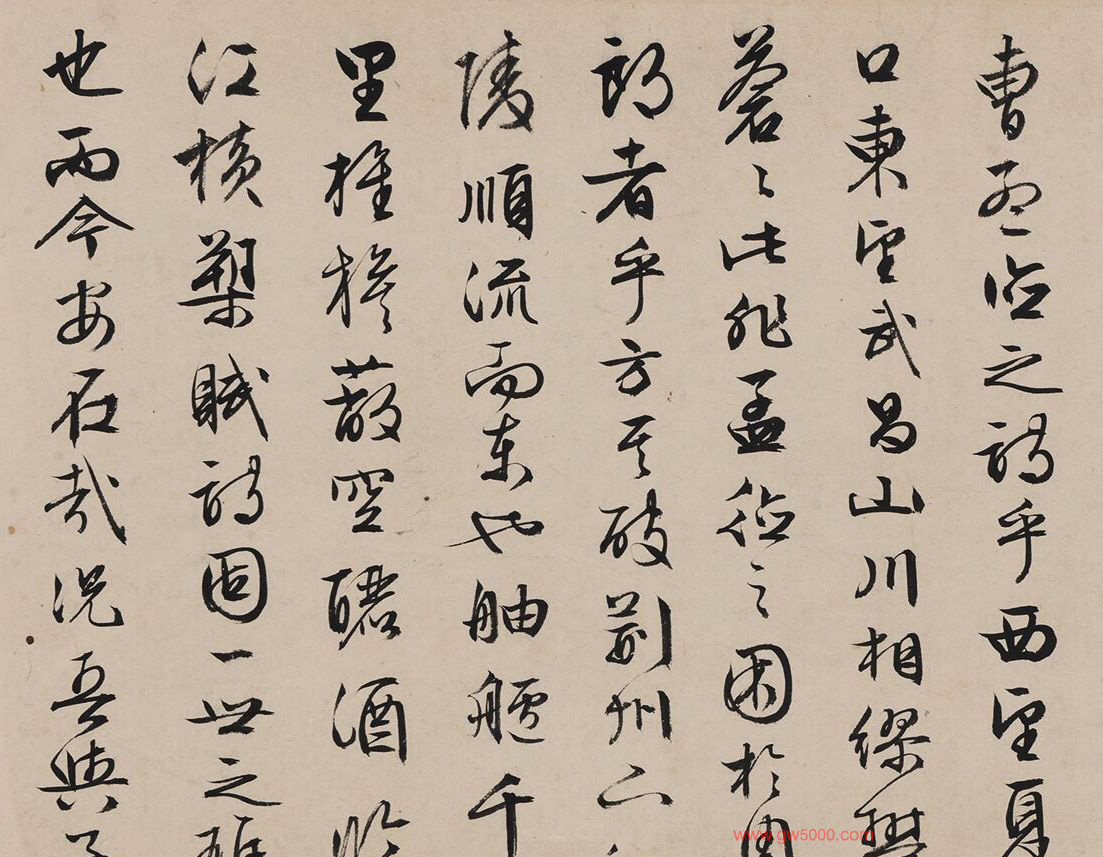 曹孟德之詩乎西望夏
口東望武昌山川相繆鬱
蒼々此非孟德之困於周
郎者乎方其破荊州下
陵順流而東也舳艫千
里旌旗蔽空釃酒臨
江橫槊賦詩固一世之雄
也而今安在哉況吾與子
www.gw5000.com